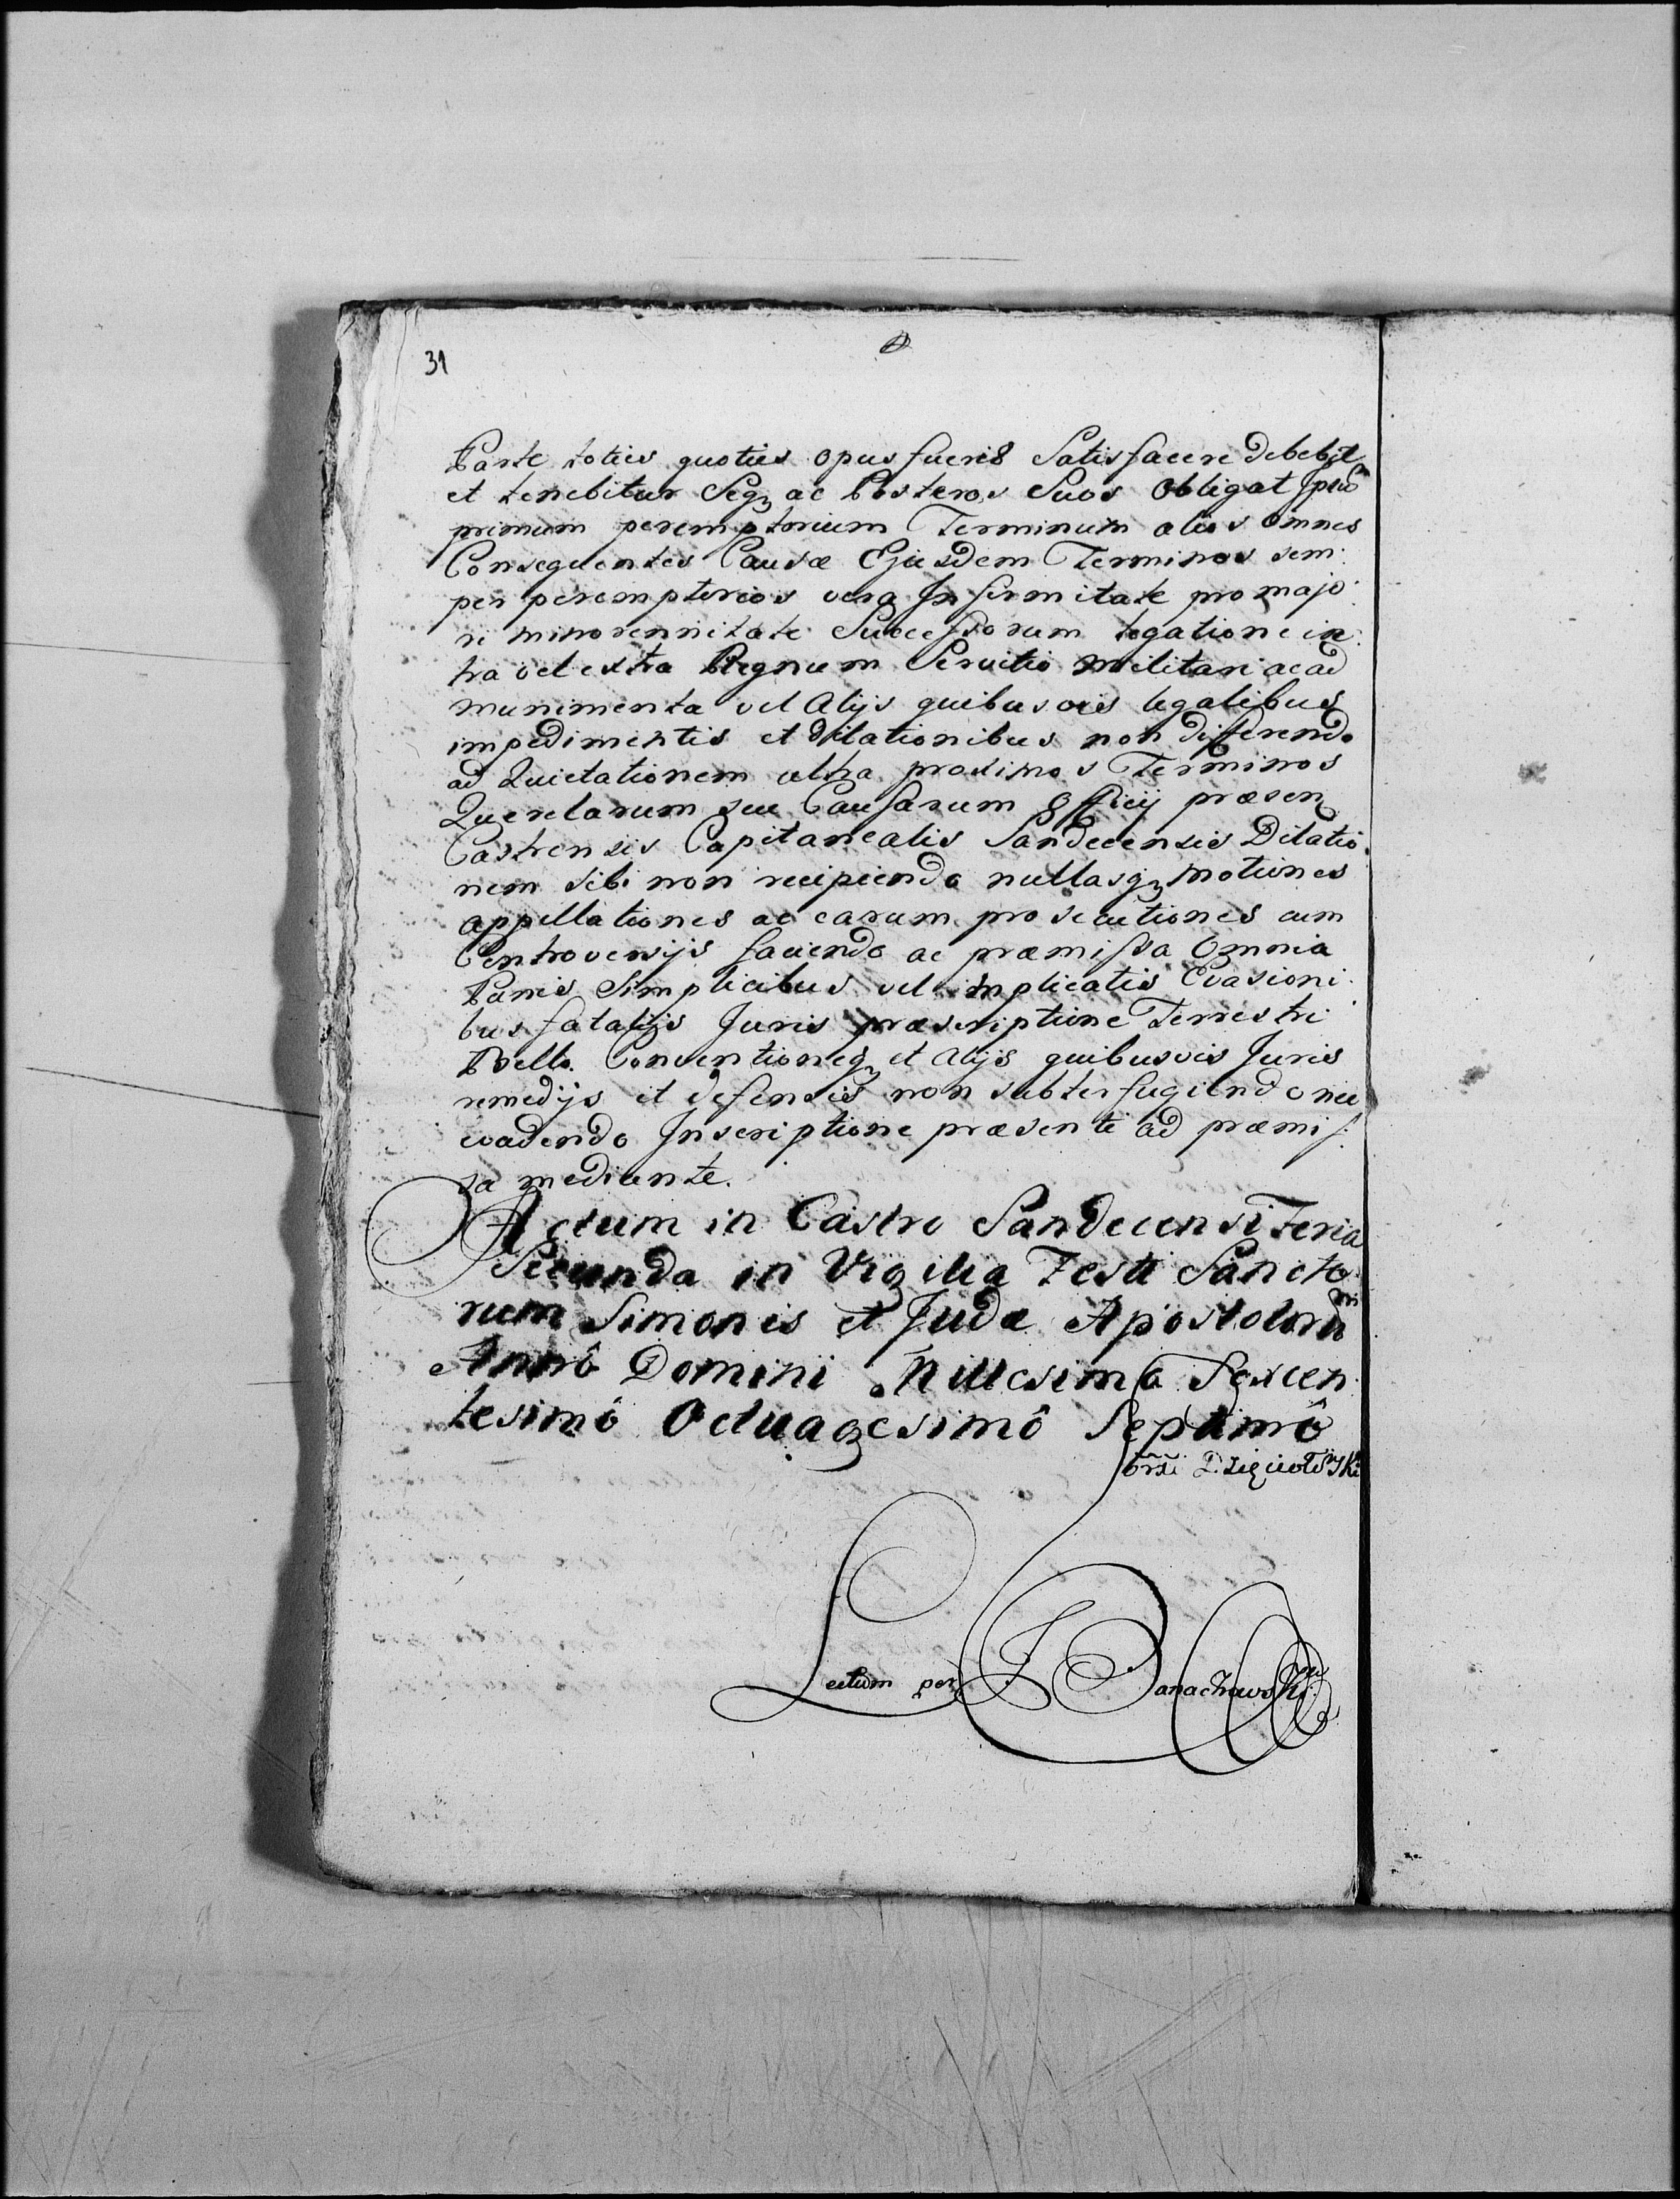 31
Parte toties quoties opus fuerit Satisfacere debebit
et tenebitur Seqꝫ ac Posteros Suos Obligat Ipsũ
primum peremptorium Terminum alios omnes
Consequentes Causæ Ejusdem Terminos sem:
per peremptorios vera Infirmitate pro majo:
ri minorennitate Successorum legatione in:
tra vel extra Regnum Servitio Militari ac ad
munimenta vel Alijs quibusvis legalibus
impedimentis et dilationibus non differendo
ad Quietationem ultra proximos Terminos
Querelarum seu Causarum Officij præsen
Castrensis Capitanealis Sandecensis Dilatio:
nem sibi non recipiendo nullasqꝫ motiones
appellationes ac earum prosecutiones cum
Controversijs faciendo ac præmissa Omnia
Pænis Simplicibus vel implicatis Evasioni:
bus fatalijs Juris præscriptione Terrestri
Bello Conventioneqꝫ et Alijs quibusvis Juris
remedijs et defensis non subterfugiendo nec
evadendo Inscriptione præsenti ad præmis:
sa mediante.
Actum in Castro Sandecensi Feria
Secunda in Vigilia Festi Sancto
rum Simonis et Judæ Apostolorũ
Annô Domini Millesimô Sexcen
tesimô Octuagesimô Septimô
Lectum per J Banachowski